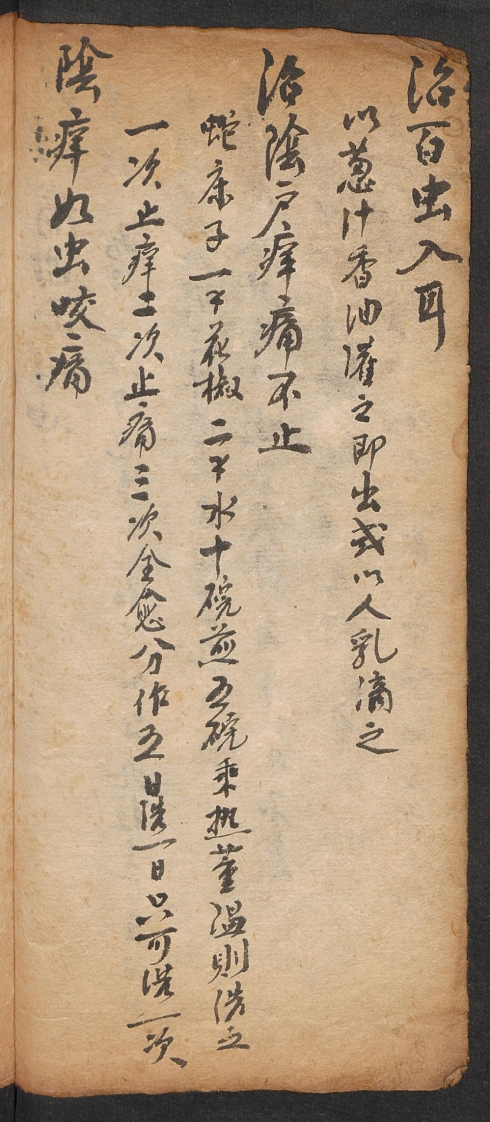 治百虫入耳
以蔥汁香油灌之即出或以人乳滴之
治陰户痒痛不止
蛇床子一千花椒二千水十碗煎五碗乘热薰温則洗之
一次止痒二次止痛三次全愈分作五日洗一日只可洗一次
陰痒如虫咬痛